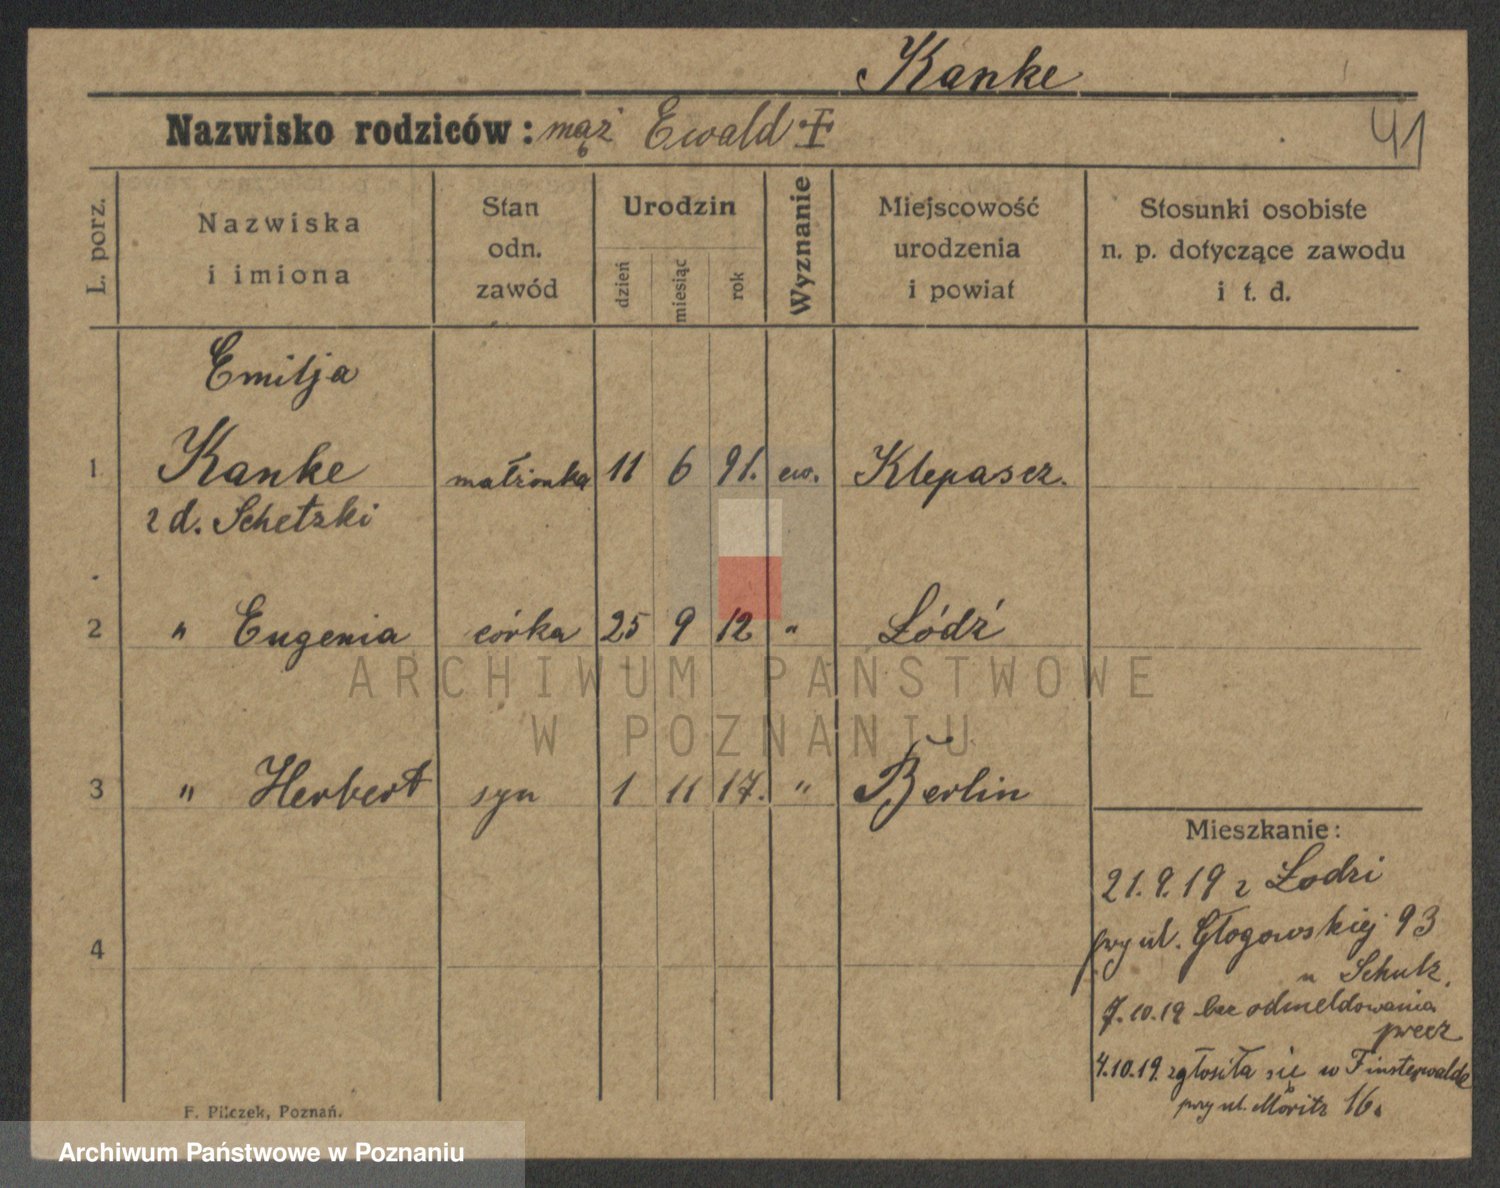 Kanke
Nazwisko rodziców: mąż Ewald
41
L. porz.
Nazwiska i imiona
Stan odn. zawód
Urodzin
dzień
miesiąc
rok
Wyznanie
Miejscowość urodzenia i powiat
Stosunki osobiste n. p. dotyczące zawodu i t. d.
Emilja
1 Kanke małżonka 11 6 91. ew. Klepascz.
z d. Schetzki
2 " Eugenia córka 25 9 12 " Łódź
3 " Herbert syn 1 11 17. " Berlin
4
Mieszkanie:
21.9.19 z Łodzi
przy ul. Głogowskiej 93
u Schulz.
7.10.19 bez odmeldowania
precz
4.10.19. zgłosiła się w Finsterwalde
przy ul. Moritz 16.
F. Pilczek, Poznań.
ARCHIWUM PAŃSTWOWE
W POZNANIU
Archiwum Państwowe w Poznaniu